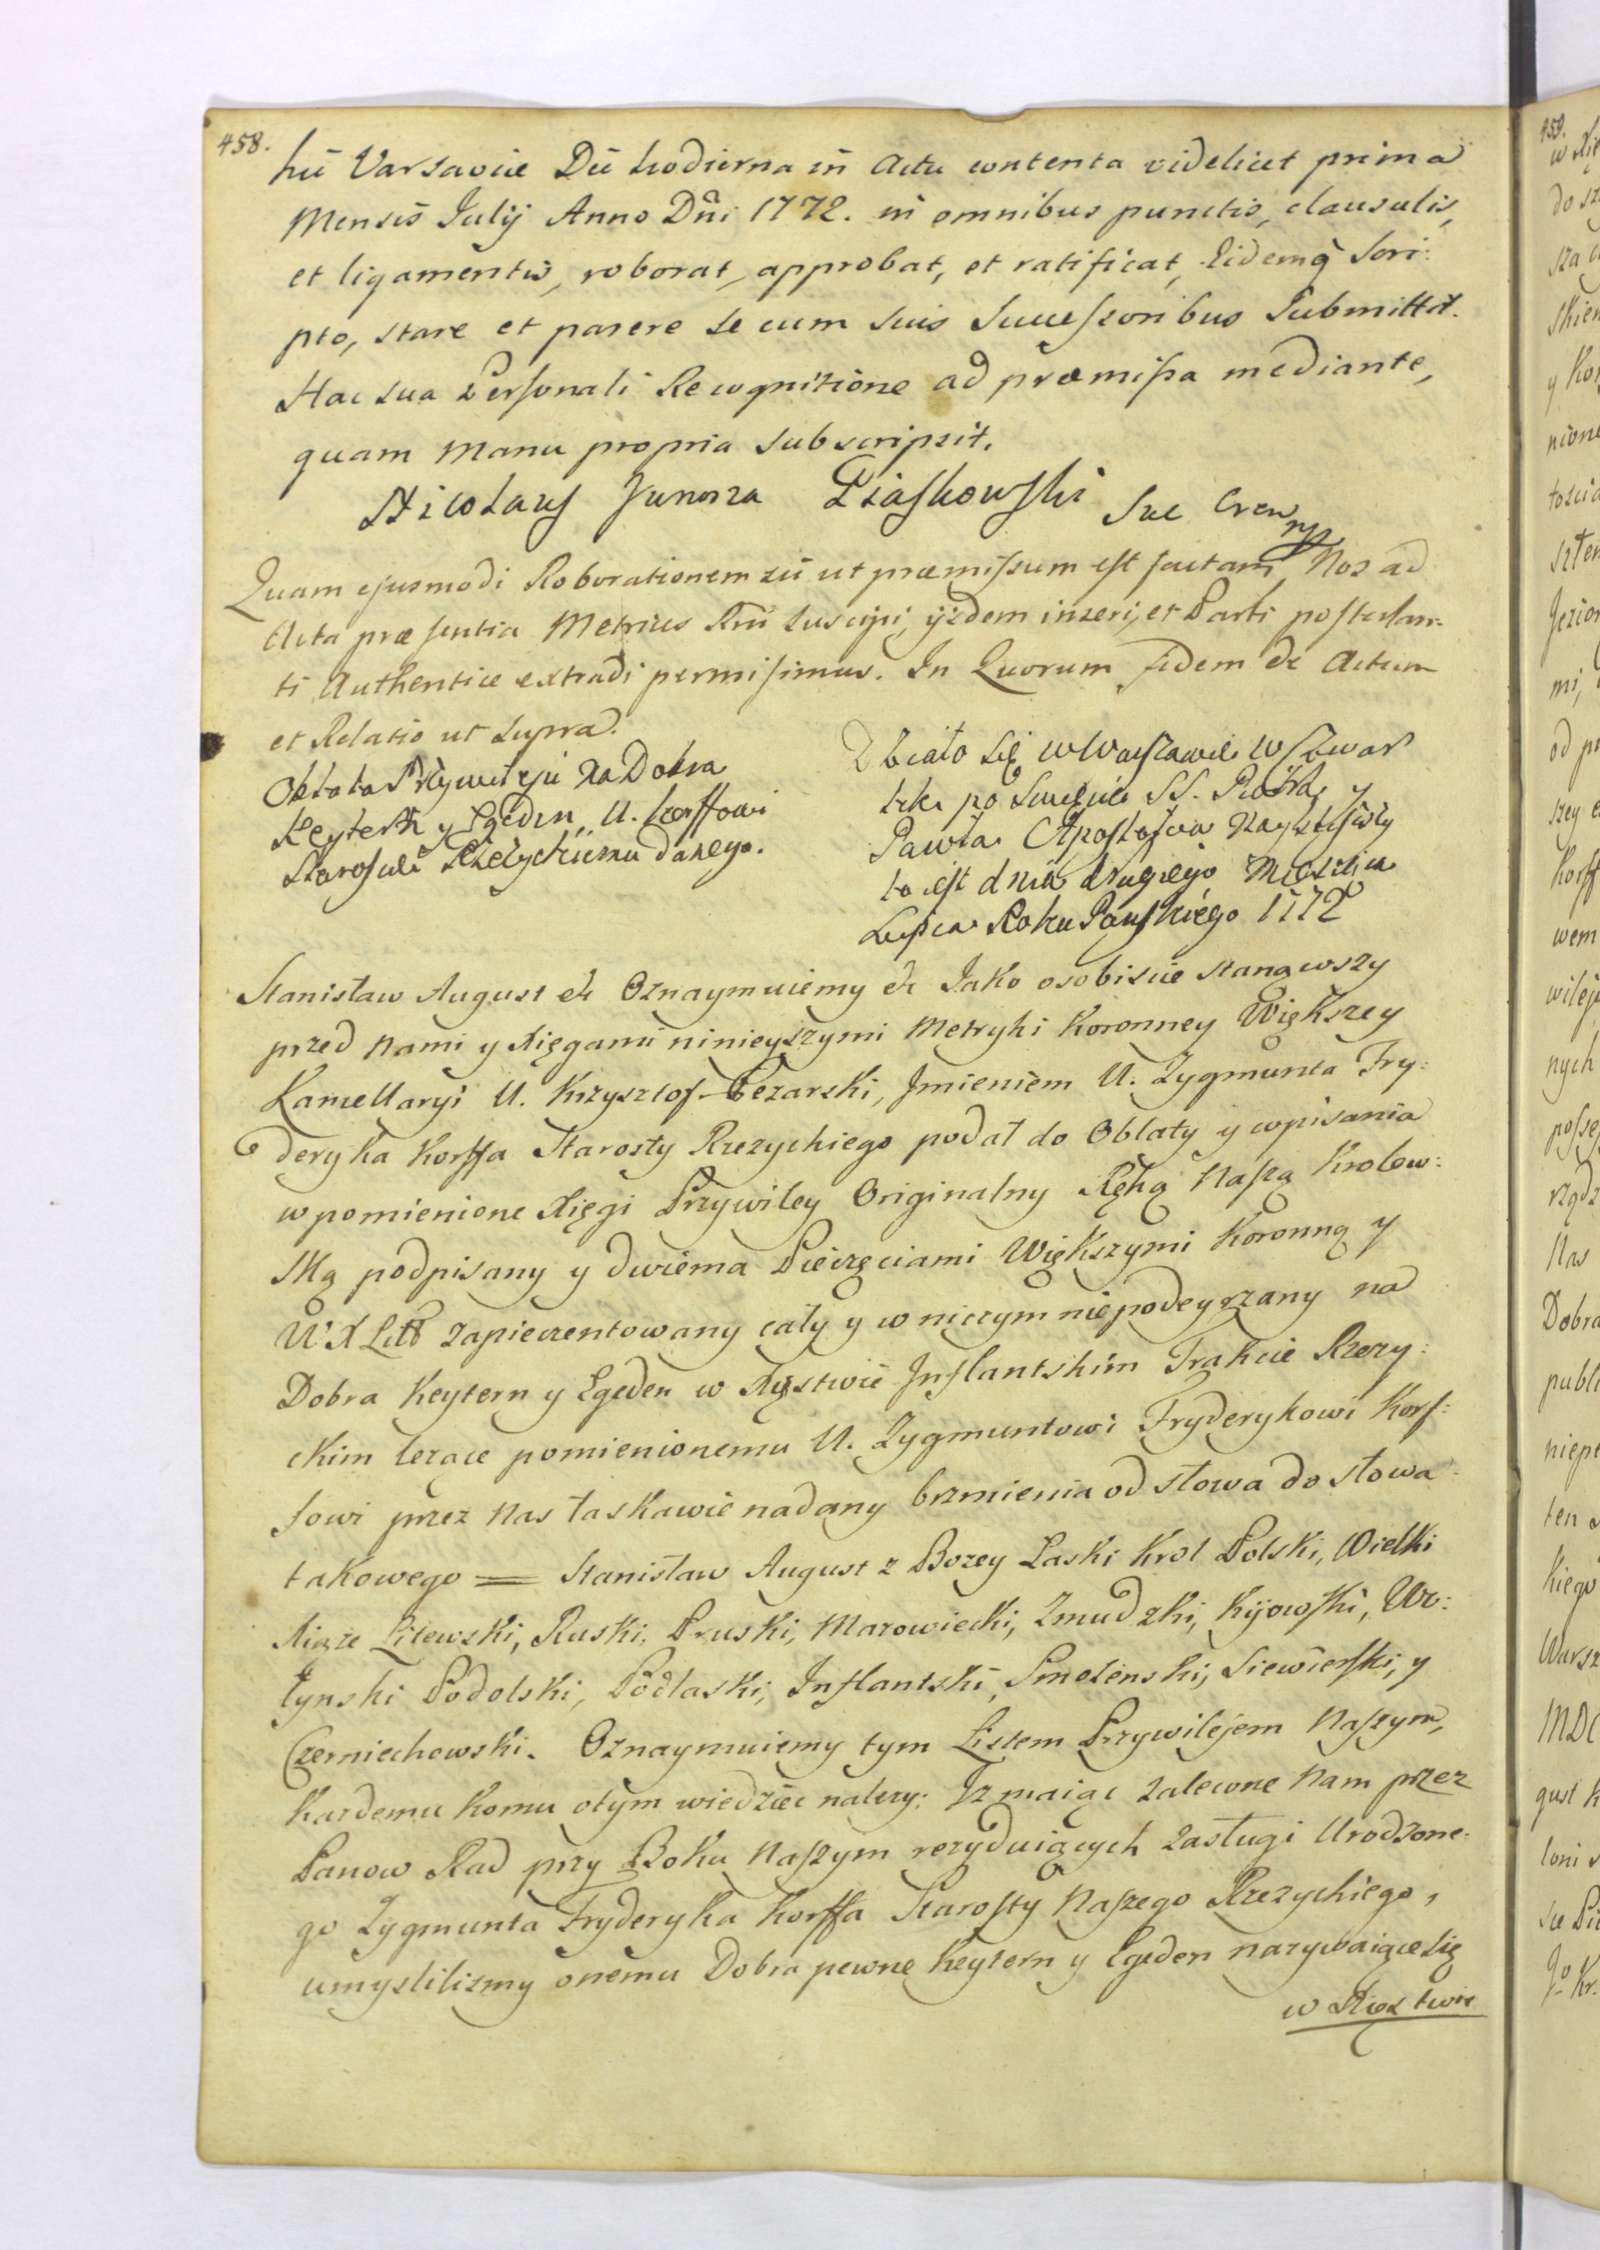 458.
hu Varsaviæ Die hodierna in Actu contenta videlicet prima
Mensis Julij Anno Dni 1772. in omnibus punctis, clausulis,
et ligamentis, roborat, approbat, et ratificat, Eidemq̀ Scri:
pto, stare et parere se cum suis Successoribus Submittit.
Hac sua Personali Recognitione ad præmissa mediante,
quam Manu propria subscripsit.
Nicolaus Junosza Piaskowski Suc Crem mp
Quam ejusmodi Roborationem sic ut præmissum est factam, Nos ad
Acta præsentia Metrices Rni suscipi, ijsdem inseri, et Parti postulan-
ti Authentice extradi permisimus. In Quorum fidem &c Actum
et Relatio ut supra.
Oblata Przywileju na Dobra
Keytern y Egeden U. Korffowi
Staroscie Rzeżyckiemu danego.
Działo się w Warszawie w Czwar
tek po Święcie SS. Piotra y
Pawła Apostołow Nayblizszy
to iest dnia drugiego Miesiąca
Lipca Roku Pańskiego 1772
Stanisław August &c Oznaymuiemy &c Jako osobiscie stanąwszy
przed Nami y Xięgami ninieyszymi Metryki Koronney Większey
Kancellaryi U. Krzysztof Cezarski, Jmieniem U. Zygmunta Fry:
deryka Korffa Starosty Rzezyckiego podał do Oblaty y wpisania
w pomienione Xięgi Przywiley Originalny Ręką Naszą Krolew:
ską podpisany y dwiema Pieczęciami Większymi Koronną y
W X Litt zapieczentowany cały y w niczym niepodeyrzany na
Dobra Keytern y Egeden w Xięstwie Jnflantskim Trakcie Rzezy:
ckim lezące pomienionemu U. Zygmuntowi Fryderykowi Korf:
fowi przez Nas łaskawie nadany brzmienia od słowa do słowa
takowego = Stanisław August z Bozey Łaski Krol Polski, Wielki
Xiąze Litewski, Ruski, Pruski, Mazowiecki, Zmudzki, Kijowski, Wo:
łynski Podolski, Podlaski, Inflantski, Smolenski, Siewierski, y
Czerniechowski. Oznaymuiemy tym Listem Przywilejem Naszym,
Kazdemu komu otym wiedziec nalezy: Iz maiąc zalecone Nam przez
Panow Rad przy Boku Naszym rezyduiących zasługi Urodzone:
go Zygmunta Fryderyka Korffa Starosty Naszego Rzezyckiego,
umyslilismy onemu Dobra pewne Keytern y Egeden nazywaiące się
w Xięstwie